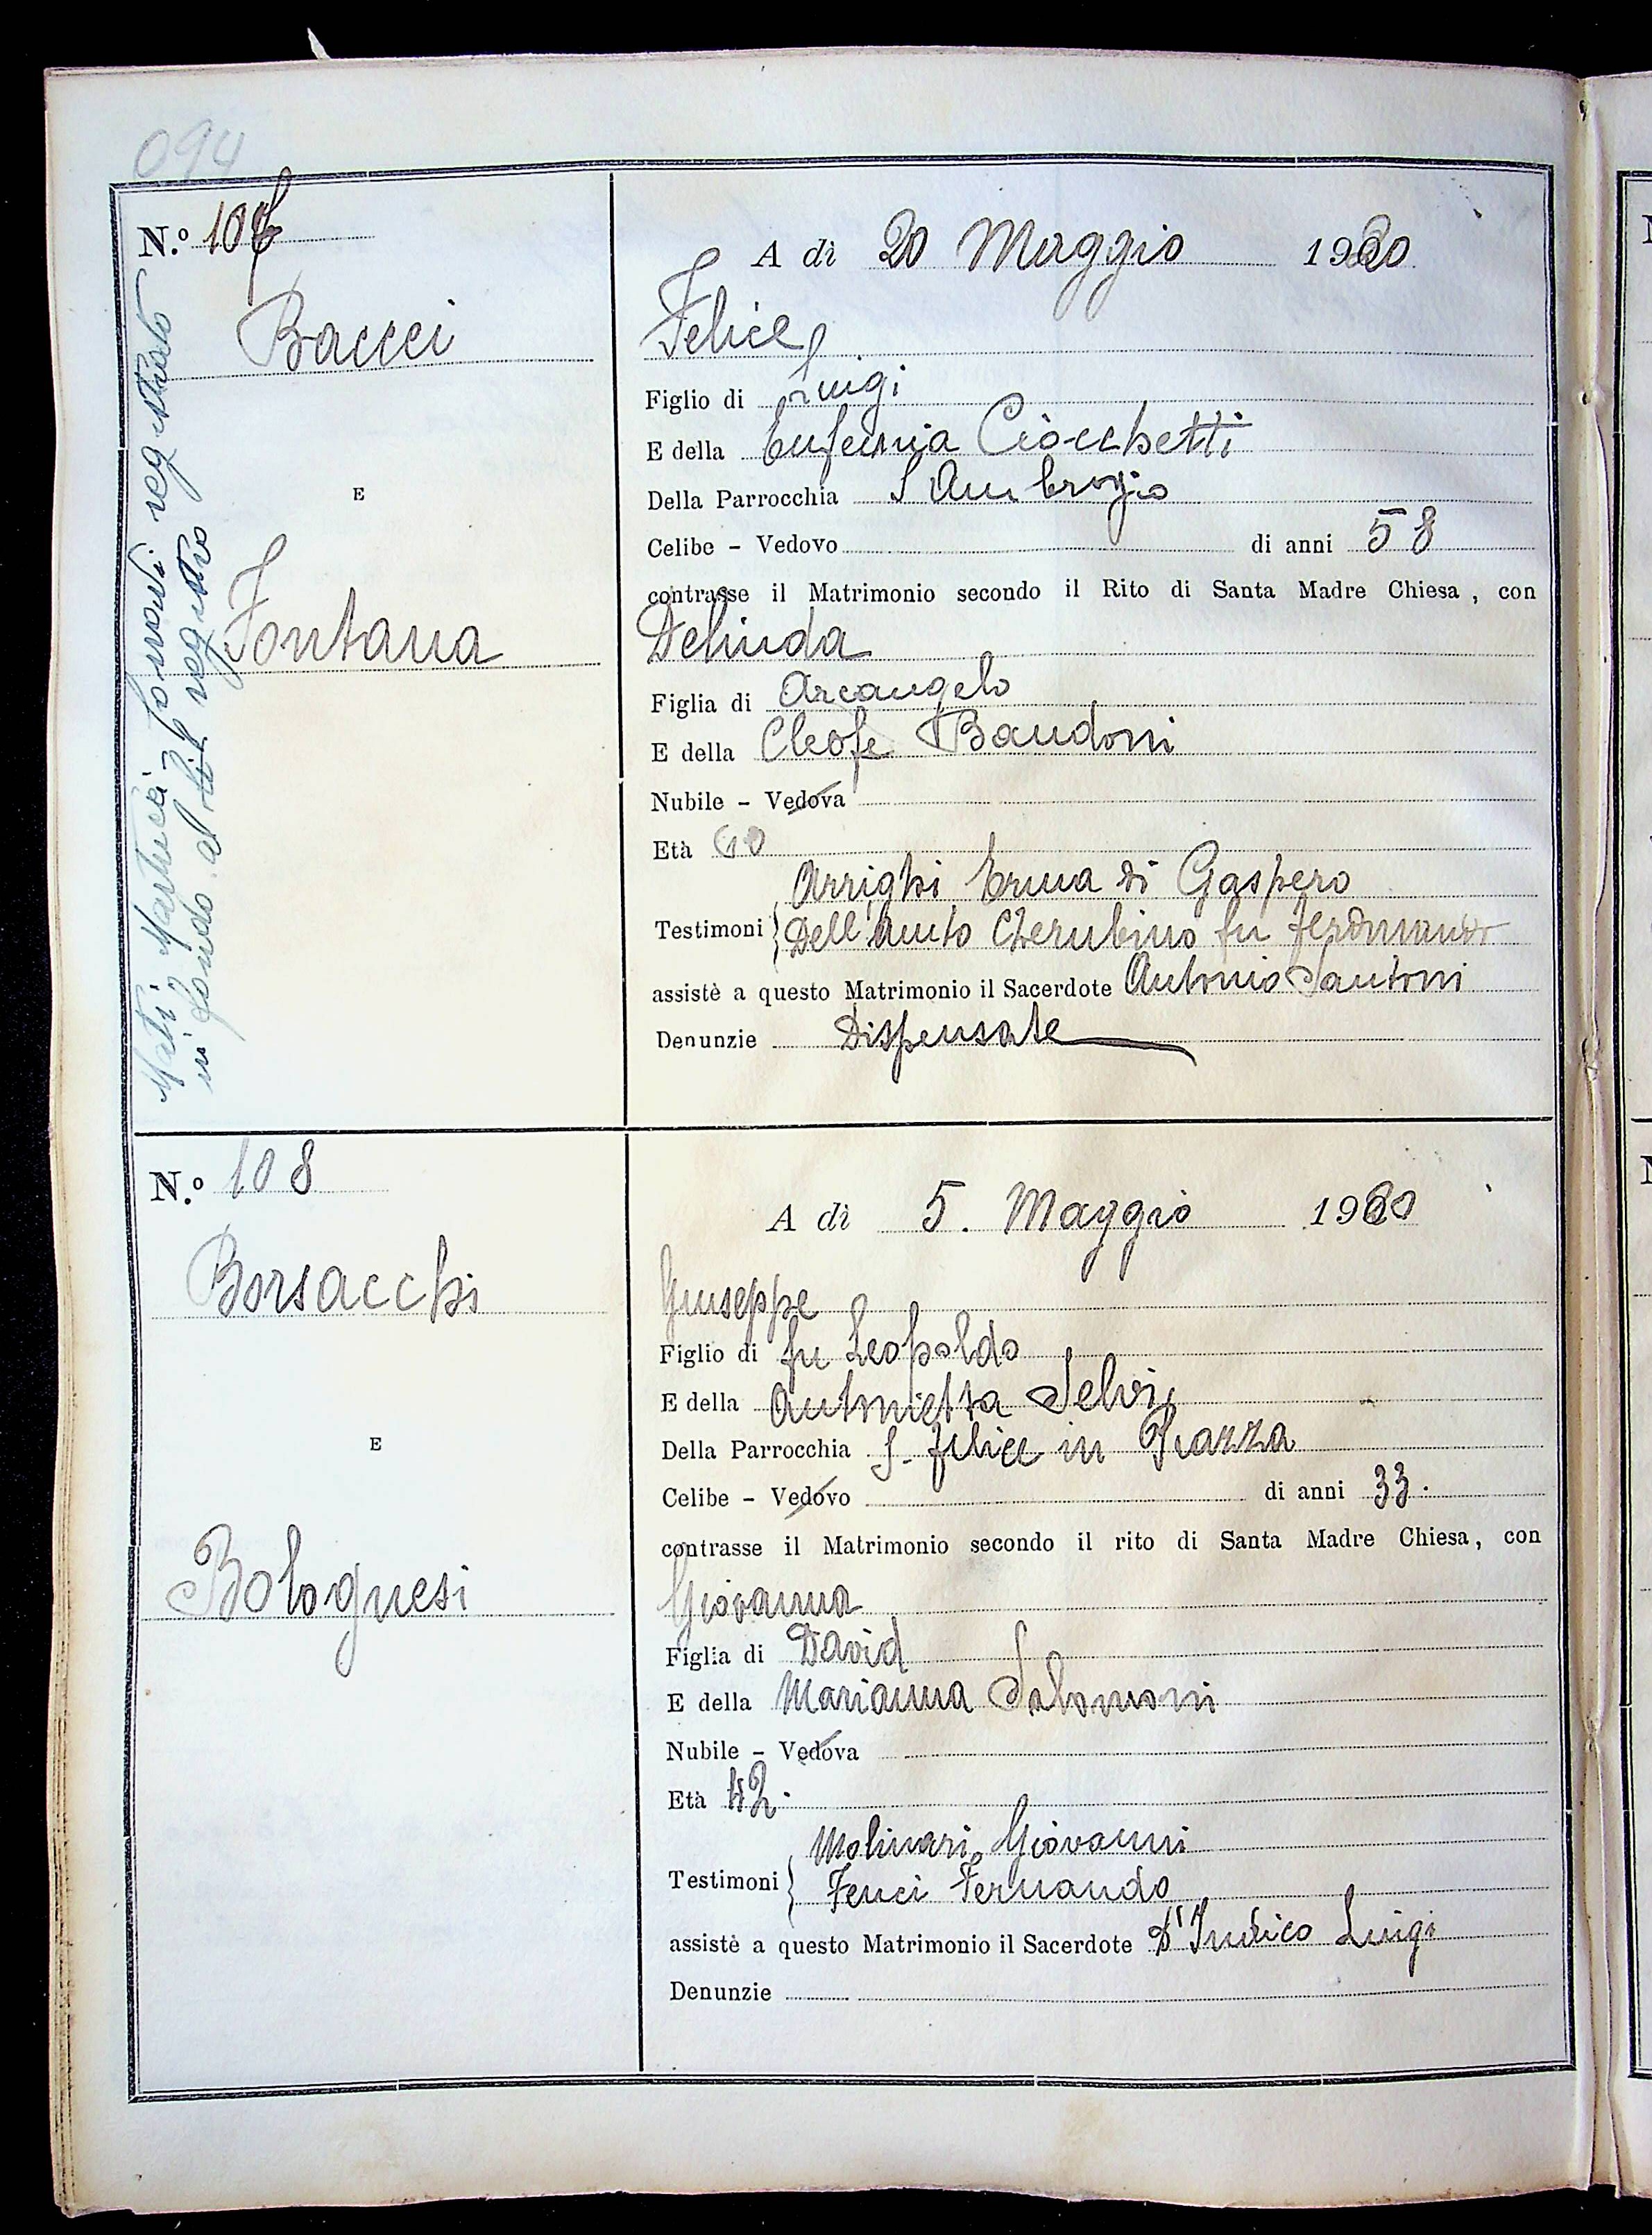 094
N.º 107
Bacci
E
Fontana
in fondo al registro
A dì 20 Maggio 1920
Felice
Figlio di Luigi
E della Eufemia Ciocchetti
Della Parrocchia S Ambrogio
Celibe - Vedovo di anni 58
contrasse il Matrimonio secondo il Rito di Santa Madre Chiesa, con
Delinda
Figlia di Arcangelo
E della Cleofe Bandoni
Nubile - Vedova
Età 60
Arrighi Erma di Gaspero
Testimoni Cherubino fu Ferdinando
assistè a questo Matrimonio il Sacerdote Antonio Santoni
Denunzie Dispensate
N.º 108
Borsacchi
E
Bolognesi
A dì 5. Maggio 1920
Giuseppe
Figlio di fu Leopoldo
E della Antonietta Selvi
Della Parrocchia S. Felice in Piazza
Celibe - Vedovo di anni 33.
contrasse il Matrimonio secondo il rito di Santa Madre Chiesa, con
Giovanna
Figlia di David
E della Marianna Salomoni
Nubile - Vedova
Età 42.
Molinari Giovanni
Testimoni Fenci Fernando
assistè a questo Matrimonio il Sacerdote D'Indico Luigi
Denunzie